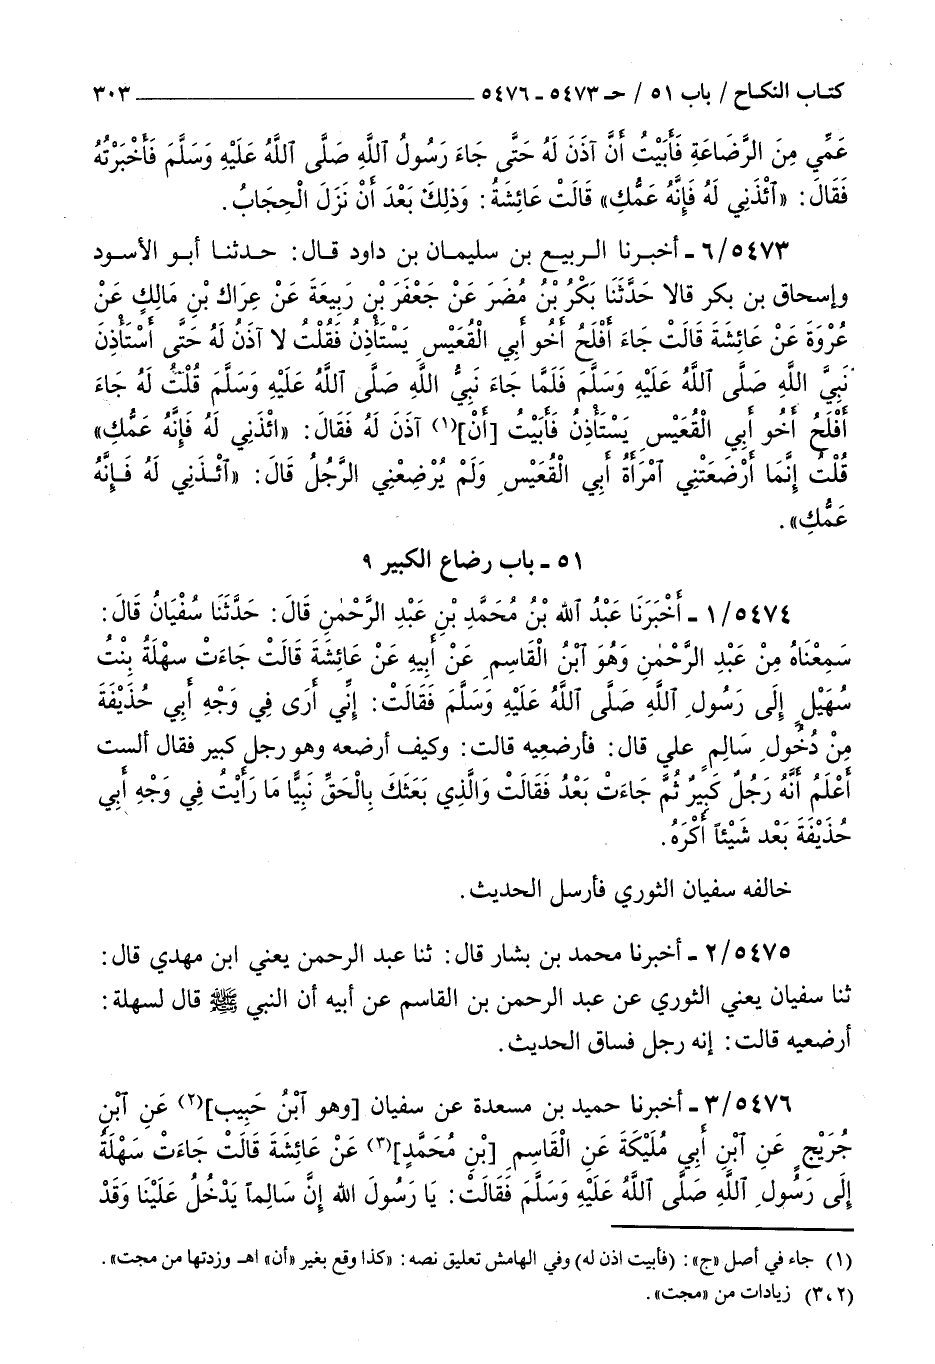 كتاب النكاح / باب ٥١ / حـ ٥٤٧٣ ـ ٥٤٧٦ ٣٠٣
عَمِّي مِنَ الرَّضَاعَةِ فَأَبَيْتُ أَنَّ آذَنَ لَهُ حَتَّى جَاءَ رَسُولُ اللَّهِ صَلَّى ٱللَّهُ عَلَيْهِ وَسَلَّمَ فَأَخْبَرْتُهُ
فَقَالَ: «ٱئْذَنِي لَهُ فَإِنَّهُ عَمُّكِ» قَالَتْ عَائِشَةُ: وَذٰلِكَ بَعْدَ أَنْ نَزَلَ الْحِجَابُ.
٦/٥٤٧٣ ـ أخبرنا الربيع بن سليمان بن داود قال: حدثنا أبو الأسود
وإسحاق بن بكر قالا حَدَّثَنَا بَكْرُ بْنُ مُضَرَ عَنْ جَعْفَرَ بْنِ رَبِيعَةَ عَنْ عِرَاكِ بْنِ مَالِكٍ عَنْ
عُرْوَةَ عَنْ عَائِشَةَ قَالَتْ جَاءَ أَفْلَحُ أَخُو أَبِي الْقُعَيْسِ يَسْتَأْذِنُ فَقُلْتُ لا آذَنُ لَهُ حَتَّى أَسْتَأْذِنَ
نَبِيَّ اللَّهِ صَلَّى ٱللَّهُ عَلَيْهِ وَسَلَّمَ فَلَمَّا جَاءَ نَبِيُّ اللَّهِ صَلَّى ٱللَّهُ عَلَيْهِ وَسَلَّمَ قُلْتُ لَهُ جَاءَ
أَفْلَحُ أَخُو أَبِي الْقُعَيْسِ يَسْتَأْذِنُ فَأَبَيْتُ [أَنْ](١) آذَنَ لَهُ فَقَالَ: «ائْذَنِي لَهُ فَإِنَّهُ عَمُّكِ»
قُلْتُ إِنَّمَا أَرْضَعَتْنِي ٱمْرَأَةُ أَبِي الْقُعَيْسِ وَلَمْ يُرْضِعْنِي الرَّجُلُ قَالَ: «ٱئْذَنِي لَهُ فَإِنَّهُ
عَمُّكِ».
٥١ ـ باب رضاع الكبير ٩
١/٥٤٧٤ ـ أَخْبَرَنَا عَبْدُ ٱلله بْنُ مُحَمَّدِ بْنِ عَبْدِ الرَّحْمٰنِ قَالَ: حَدَّثَنَا سُفْيَانُ قَالَ:
سَمِعْنَاهُ مِنْ عَبْدِ الرَّحْمٰنِ وَهُوَ ٱبْنُ الْقَاسِمِ عَنْ أَبِيهِ عَنْ عَائِشَةَ قَالَتْ جَاءَتْ سهْلَةُ بِنْتُ
سُهَيْلٍ إِلَى رَسُولِ ٱللَّهِ صَلَّى ٱللَّهُ عَلَيْهِ وَسَلَّمَ فَقَالَتْ: إِنِّي أَرَى فِي وَجْهِ أَبِي حُذَيْفَةَ
مِنْ دُخُولِ سَالِمٍ علي قال: فأرضعيه قالت: وكيف أرضعه وهو رجل كبير فقال ألست
أَعْلَمُ أَنَّهُ رَجُلٌ كَبِيرٌ ثُمَّ جَاءَتْ بَعْدُ فَقَالَتْ وَالَّذِي بَعَثَكَ بِالْحَقِّ نَبِيًّا مَا رَأَيْتُ فِي وَجْهِ أَبِي
حُذَيْفَةَ بَعْد شَيْئاً أَكْرَهُ.
خالفه سفيان الثوري فأرسل الحديث.
٢/٥٤٧٥ ـ أخبرنا محمد بن بشار قال: ثنا عبد الرحمن يعني ابن مهدي قال:
ثنا سفيان يعني الثوري عن عبد الرحمن بن القاسم عن أبيه أن النبي ﷺ قال لسهلة:
أرضعيه قالت: إنه رجل فساق الحديث.
٣/٥٤٧٦ ـ أخبرنا حميد بن مسعدة عن سفيان [وهو ٱبْنُ حَبِيب](٢) عَنِ ٱبْنِ
جُرَيْجٍ عَنِ ٱبْنِ أَبِي مُلَيْكَةَ عَنِ الْقَاسِمِ [بْنِ مُحَمَّدٍ](٣) عَنْ عَائِشَةَ قَالَتْ جَاءَتْ سَهْلَةُ
إِلَى رَسُولِ ٱللَّهِ صَلَّى ٱللَّهُ عَلَيْهِ وَسَلَّمَ فَقَالَتْ: يَا رَسُولَ الله إِنَّ سَالِماً يَدْخُلُ عَلَيْنَا وَقَدْ
(١) جاء في أصل «ج»: (فأبيت اذن له) وفي الهامش تعليق نصه: «كذا وقع بغير «أن» اهـ وزدتها من مجت».
(٢، ٣) زيادات من «مجت».